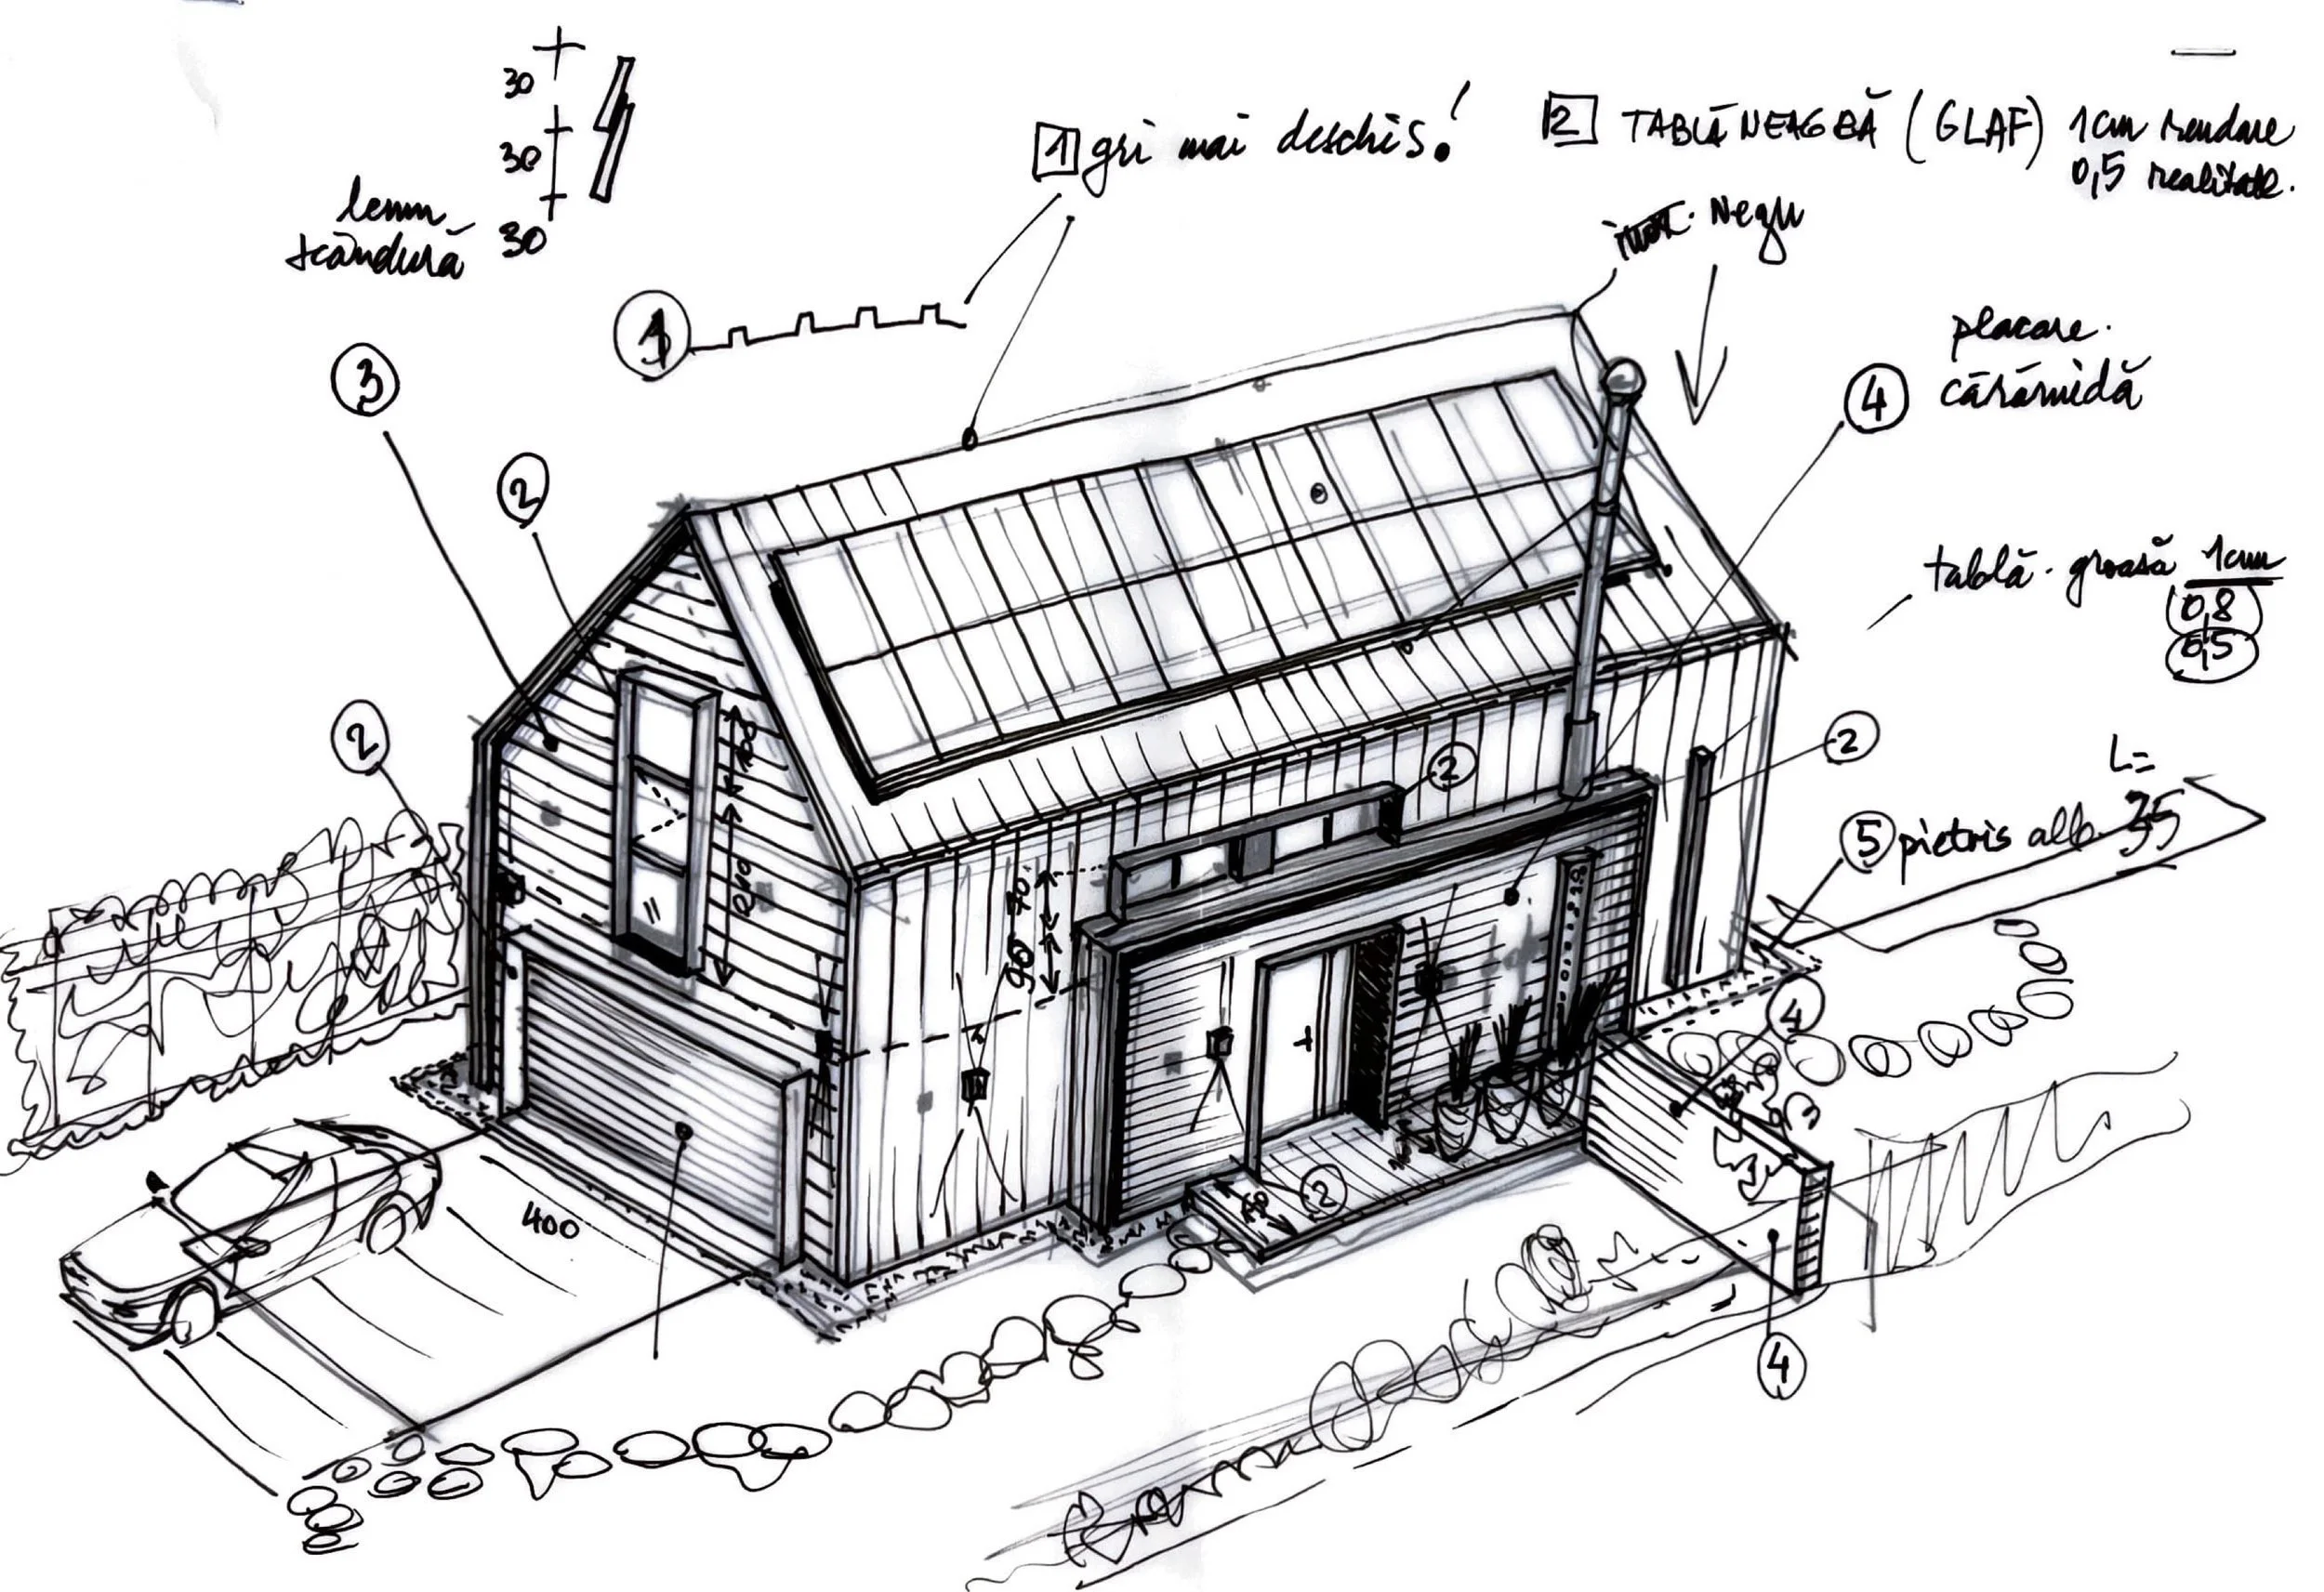 30
30
30
lemn
scândură
1 gri mai deschis!
2 TABLĂ NEAGRĂ (GLAF) 1cm randare
0,5 realitate.
Negru
1
3
2
4 placare
cărămidă
tablă groasă 1cm
0,8
0,5
2
2
2
L=
5 pietriș alb 35
100
210
70
90
4
2
400
4